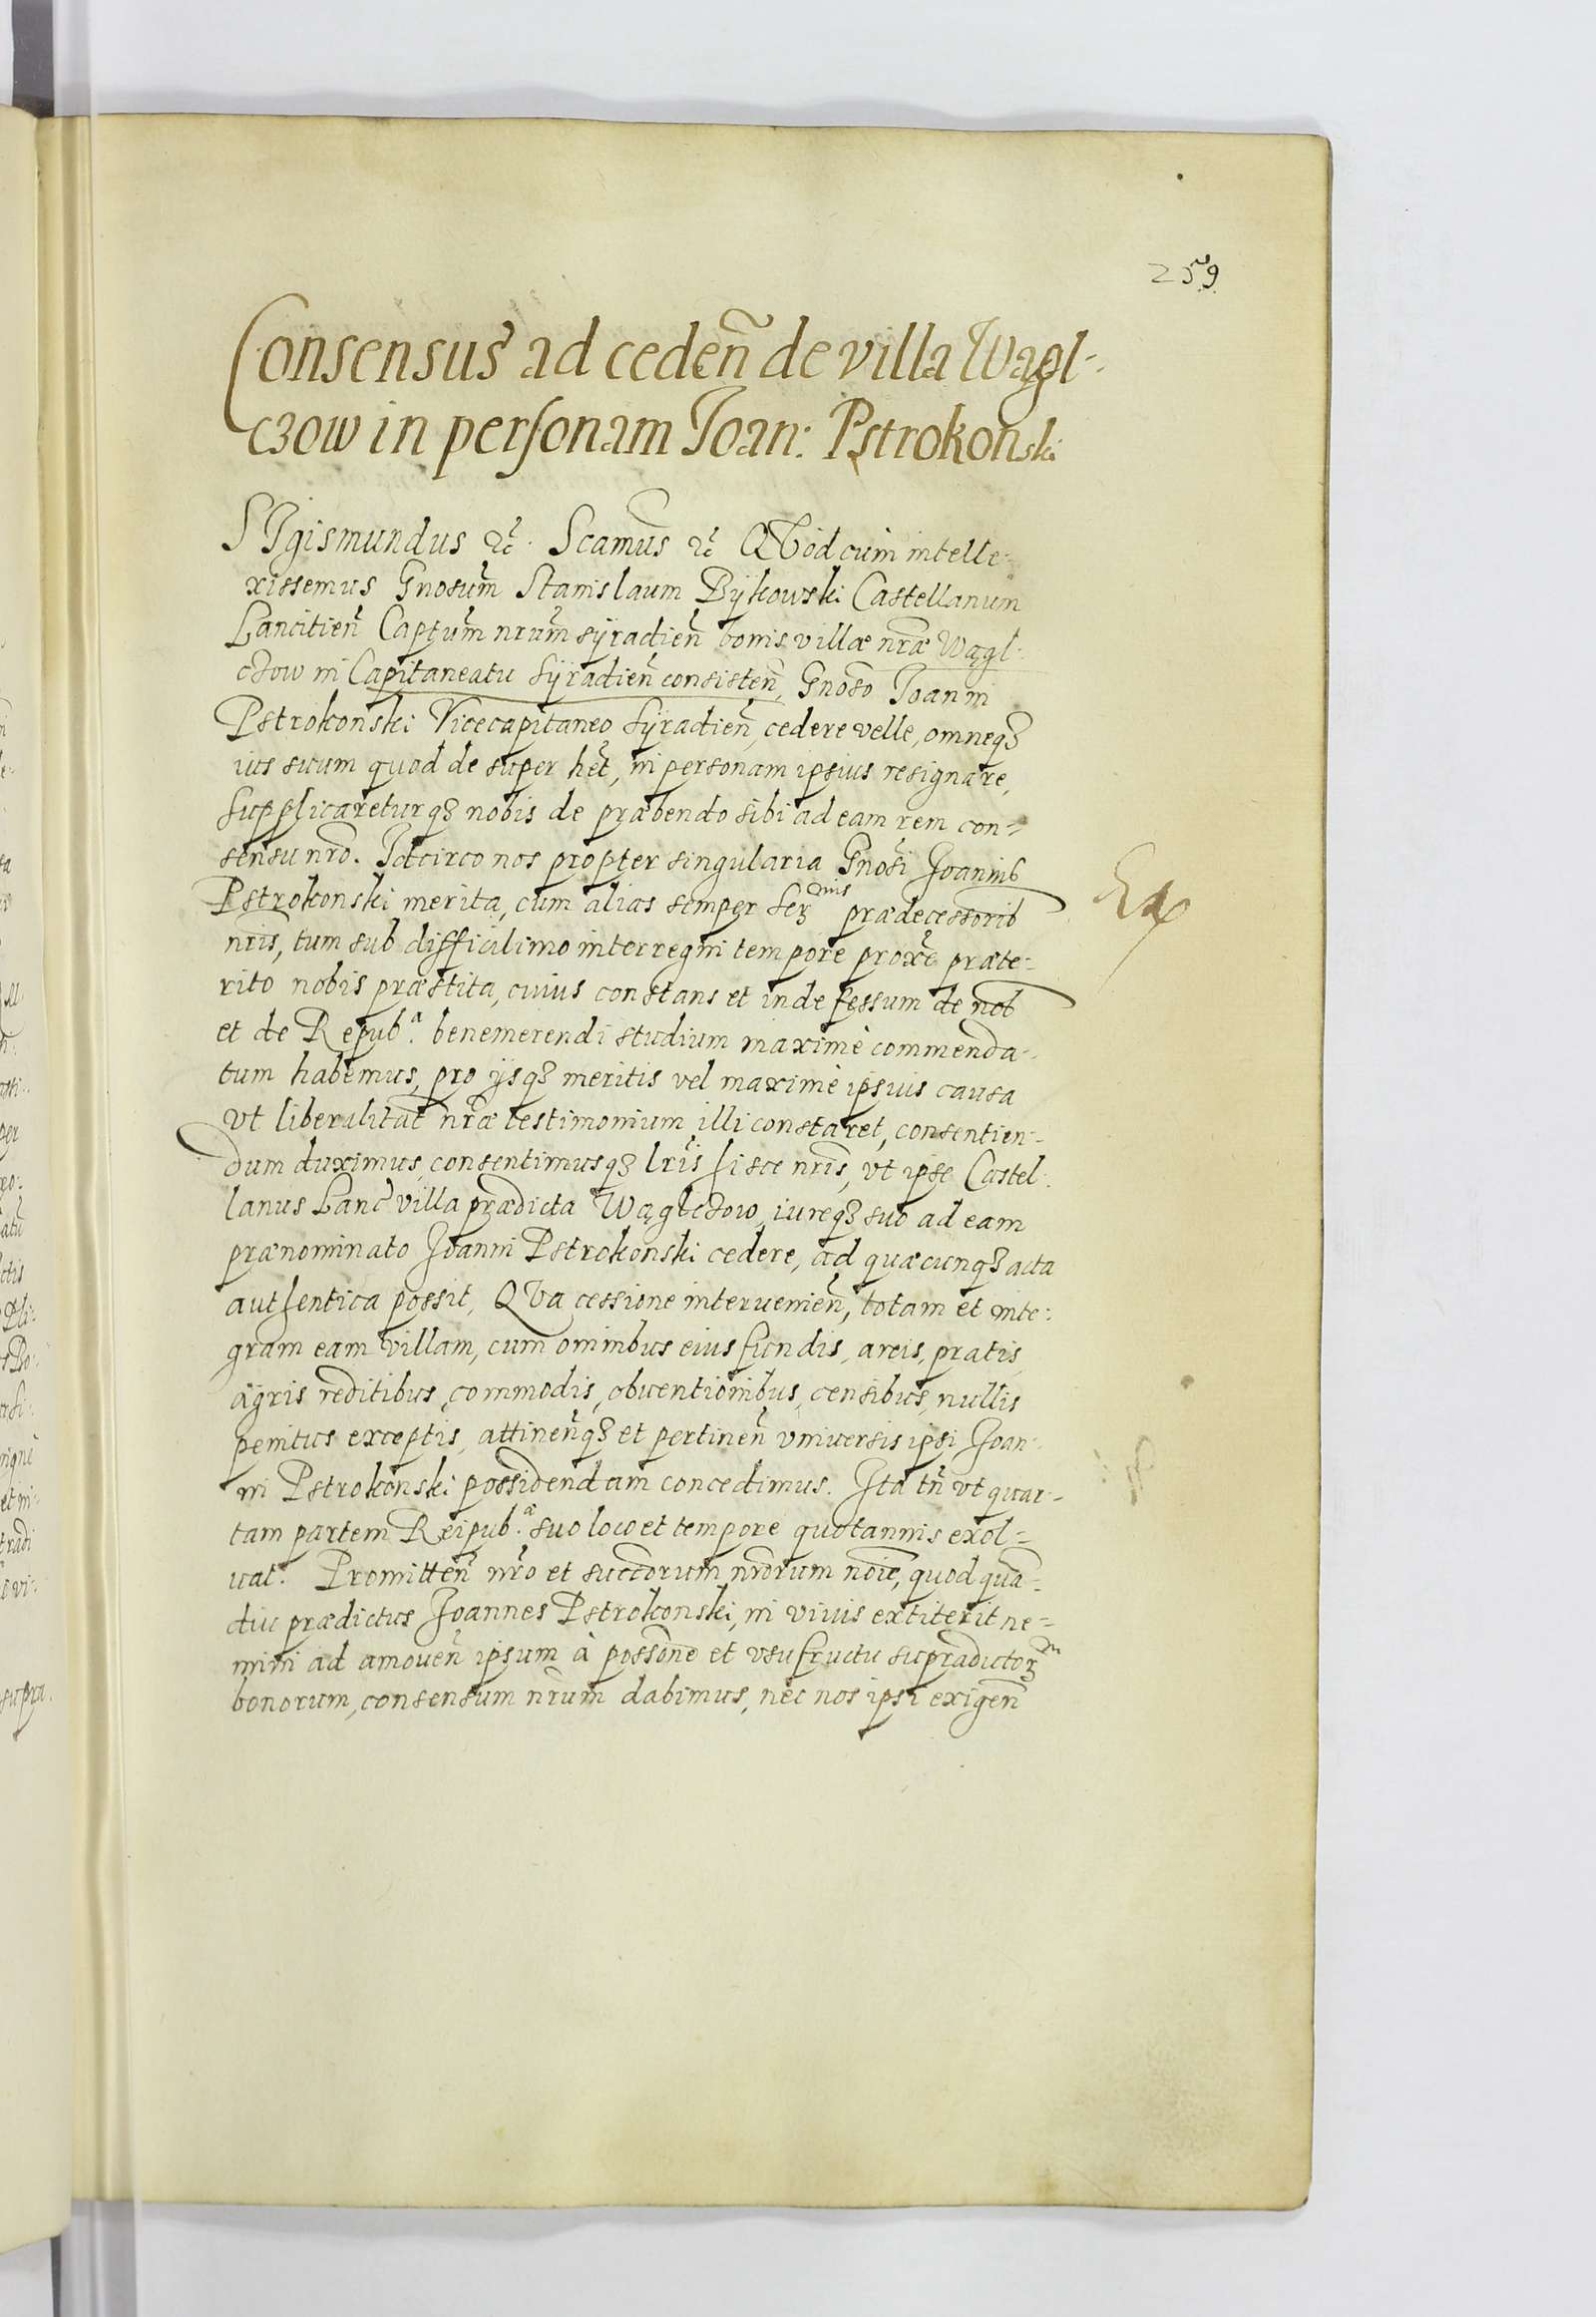 259
Consensus ad cedeñ de villa Wągl-
czow in personam Joan: Pstrokonski
SIgismundus &c. Scamus &c QVod cum intelle-
xissemus Gnosum Stanislaum Bÿkowski Castellanum
Lancitien̄ Captum nrum sÿradien̄ bonis villæ nræ Wągl-
czow in Capitaneatu Sÿradien̄ consisten̄, Gnoso Joanni
Pstrokonski Vicecapitaneo Sÿradien̄, cedere velle, omneq3
ius suum quod de super het, in personam ipsius resignare,
supplicareturq3 nobis de præbendo sibi ad eam rem con-
sensu nro. Idcirco nos propter singularia Gnosi Joannis
Pstrokonski merita, cum alias semper Ser mis prædecessorib
nris, tum sub difficilimo interregni tempore proxē præte-
rito nobis præstita, cuius constans et indefessum de nob
et de Repub.ª benemerendi studium maximè commenda-
tum habemus, pro ijsq3 meritis vel maximè ipsius causa
vt liberalitat̄ nræ testimonium illi constaret, consentien-
dum duximus, consentimusq3 lris hisce nris, vt ipse Castel-
lanus Lanc̄ villa prædicta Wąglczow, iureq3 suo ad eam
prænominato Joanni Pstrokonski cedere, ad quæcunq3 acta
authentica possit, QVa cessione interuenien̄, totam et inte-
gram eam villam, cum omnibus eius fundis, areis, pratis,
agris reditibus, commodis, obuentionibus, censibus, nullis
penitus exceptis, attinen̄q3 et pertinen̄ vniuersis ipsi Joan-
ni Pstrokonski possidendam concedimus. Ita tn̄ vt quar-
tam partem Reipub.æ suo loco et tempore quotannis exol-
uat. Promitten̄ nro et succorum nrorum noie, quod qua-
diu prædictus Joannes Pstrokonski, in viuis extiterit ne-
mini ad amouen̄ ipsum à possone et vsufructu supradictor3
bonorum, consensum nrum dabimus, nec nos ipsi exigen̄